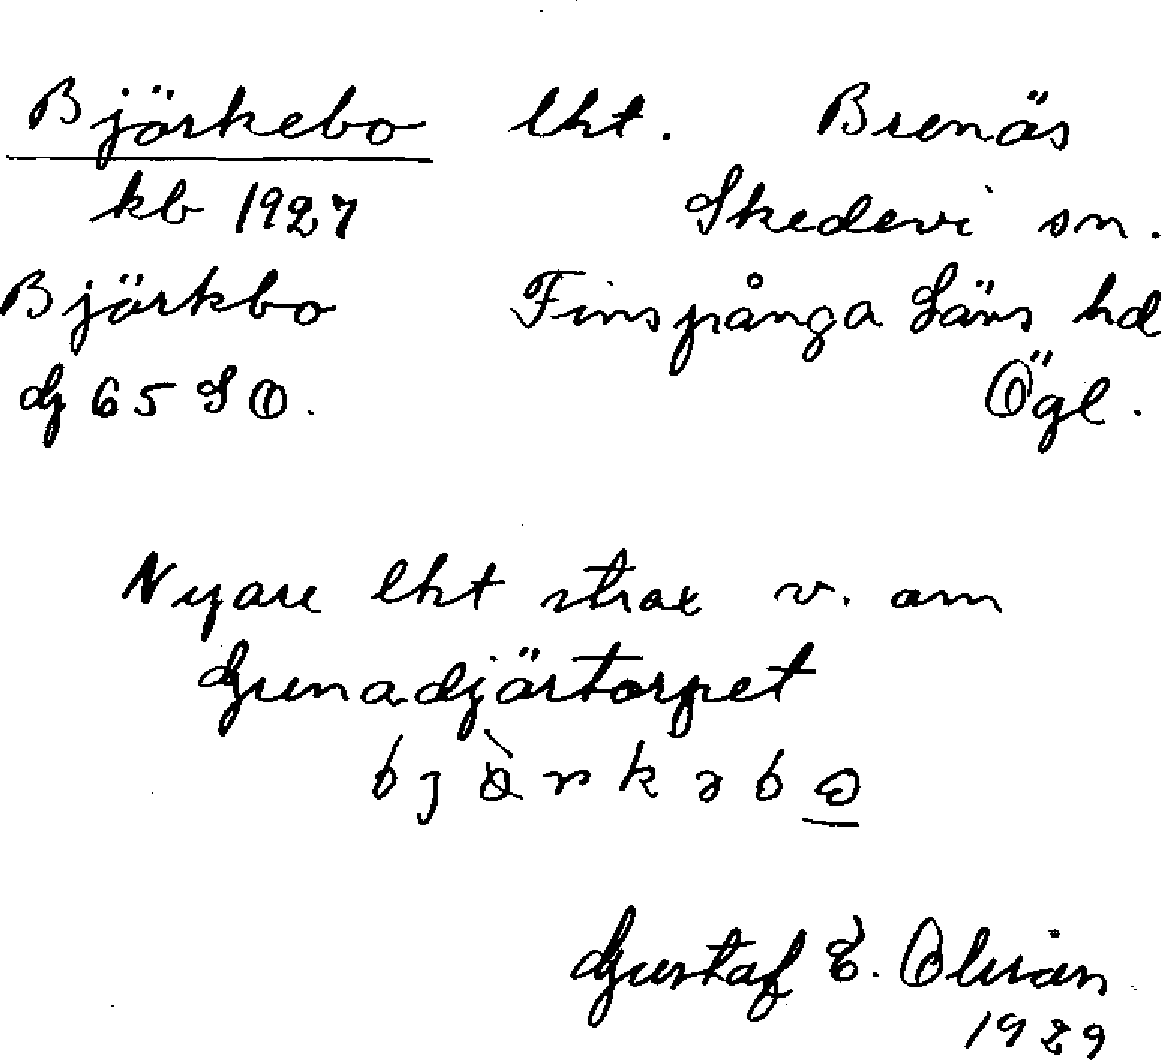 Björkebo lht. Brenäs
kb 1927 Skedevi sn.
Björkbo Finspånga läns hd
G 65 SO. Ögl.
Nyare lht strax v. om
Grenadjärtorpet
Gustaf E.
1929